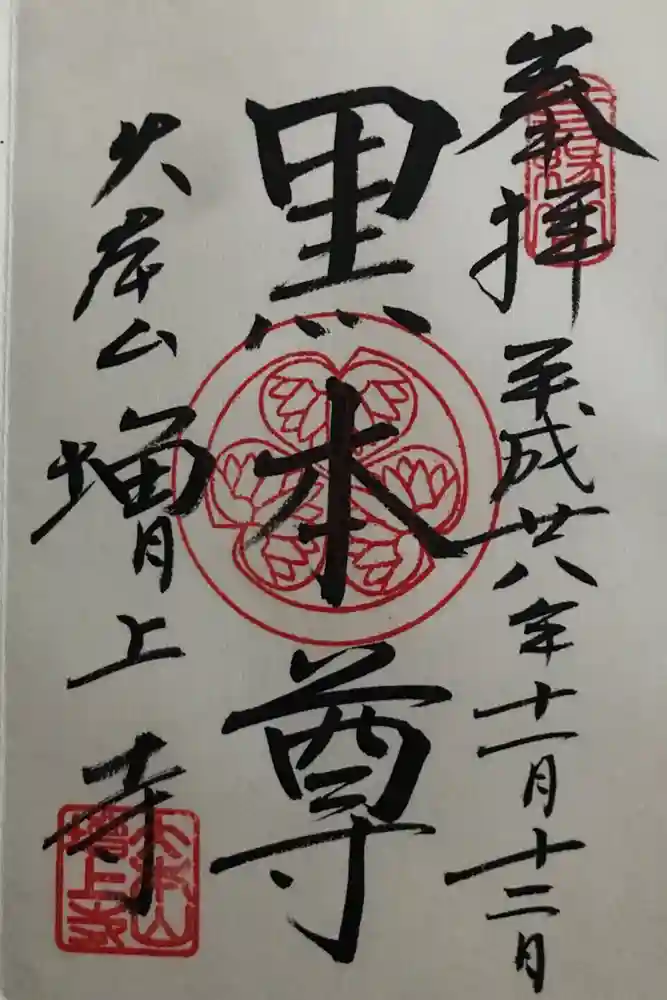 奉拝
平成廿八年十一月十二日
黒本尊
大本山
増上寺
大本山
増上寺